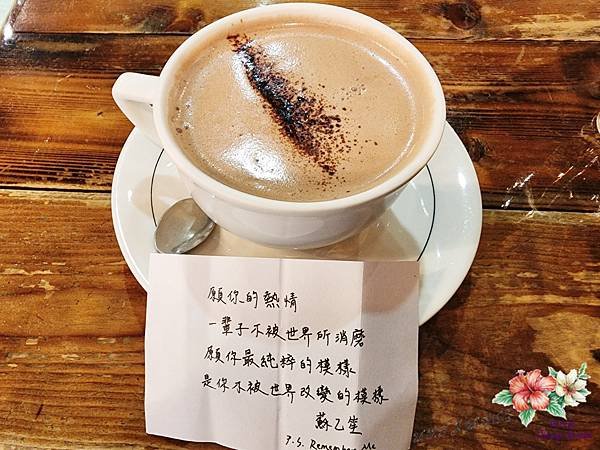 願你的熱情
一輩子不被世界所消磨
願你最純粹的模樣
是你不被世界改變的模樣
蘇乙笙
P.S. Remember Me